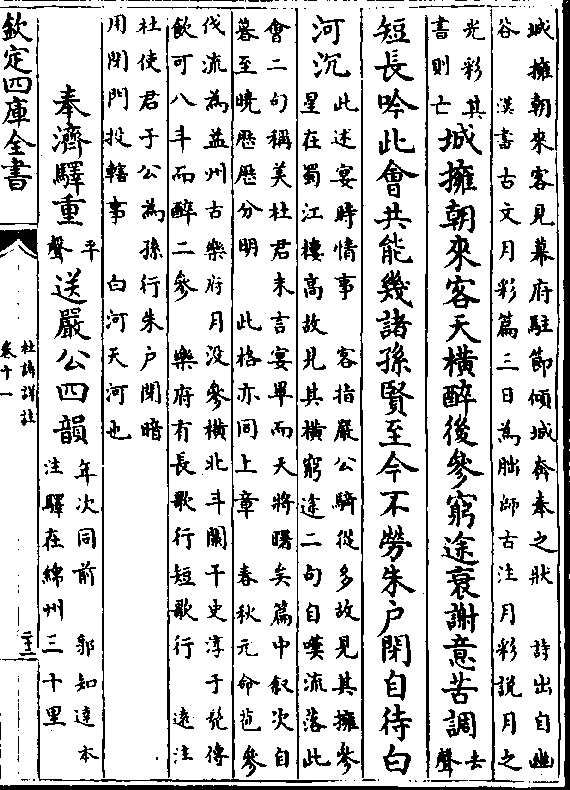 城擁朝來客見幕府駐節傾城奔奉之狀　詩出自幽
谷　漢書古文月彩篇三日為朏師古注月彩說月之
光彩其
書則亡
城擁朝來客天橫醉後參窮途衰謝意苦調去
聲
短長吟此會共能幾諸孫賢至今不勞朱戶閉自待白
河沉
此述宴時情事　客指嚴公騎從多故見其擁參
星在蜀江樓高故見其橫窮途二句自嘆流落此
會二句稱美杜君末言宴畢而天將曙矣篇中叙次自
暮至曉歷歷分明　此格亦同上章　春秋元命苞參
伐流為益州古樂府月沒參橫北斗闌干史淳于髡傳
飲可八斗而醉二參　樂府有長歌行短歌行　遠注
杜使君于公為孫行朱戶閉暗
用閉門投轄事　白河天河也
奉濟驛重平
聲送嚴公四韻
年次同前　郭知達本
注驛在綿州三十里
欽定四庫全書
杜詩詳註
卷十一